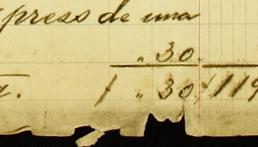 xpress de una
" 30
1 " 30 119